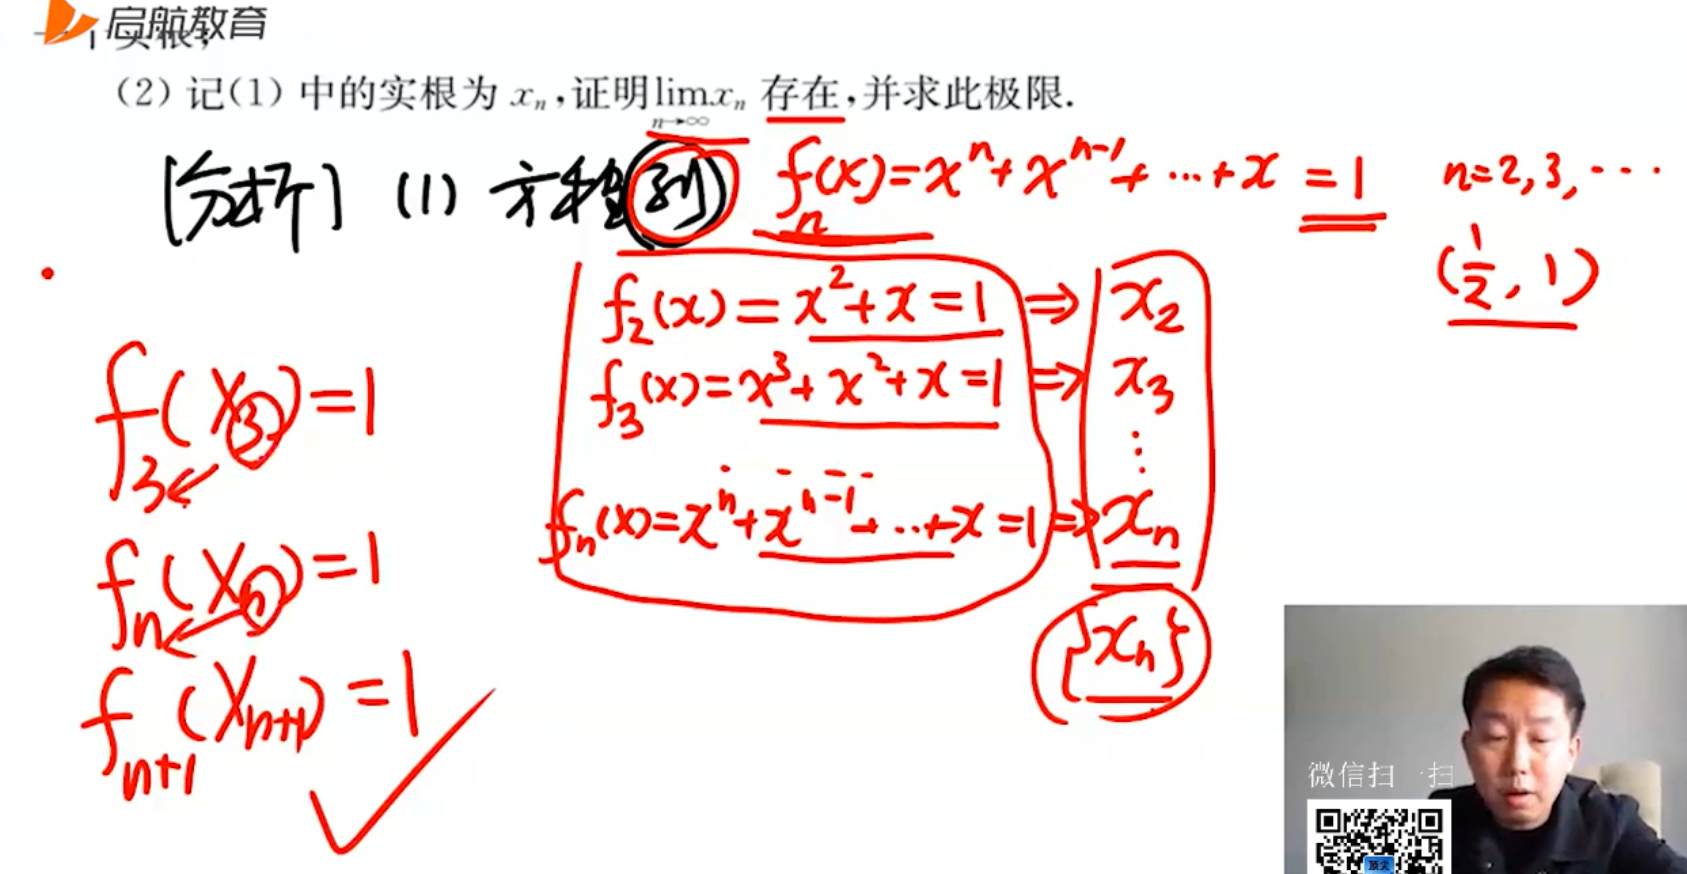 启航教育
一个实根;
(2) 记(1) 中的实根为 xₙ,证明 lim xₙ 存在,并求此极限.
n→∞
[分析] (1) 方程列 fₙ(x)=xⁿ+xⁿ⁻¹+⋯+x=1 n=2,3,⋯
(1/2, 1)
f₂(x)=x²+x=1 ⇒ x₂
f₃(x)=x³+x²+x=1 ⇒ x₃
⋮
fₙ(x)=xⁿ+xⁿ⁻¹+⋯+x=1 ⇒ xₙ
{xₙ}
f₃(x₃)=1
fₙ(xₙ)=1
fₙ₊₁(xₙ₊₁)=1
微信扫一扫